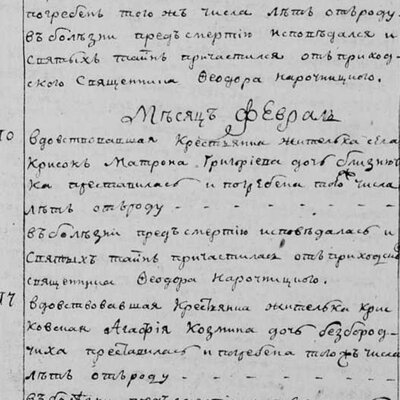 погребенъ того жъ числа лѣтъ отъ роду
въ болѣзни предъ смертію исповѣдался и
святыхъ таинъ причастился отъ приход-
ского священника Ѳеодора Нарочницкого.
Мѣсяцъ Февраль
10 вдовствовавшая крестьянка жителька села
Крисокъ Матрона Григоріева дочь близню
ка преставилась и погребена того числа
лѣтъ отъ роду - - - - - - -
въ болѣзни предъ смертію исповѣдалась и
святыхъ таинъ причастилась отъ приходско
священника Ѳеодора Нарочницкого.
17 вдовствовавшая крестьянка жителька Крис
ковская Агафія Козмина дочь безбород-
чиха преставилась и погребена того жъ числа
лѣтъ отъ роду - - - - - - -
въ болѣзни предъ